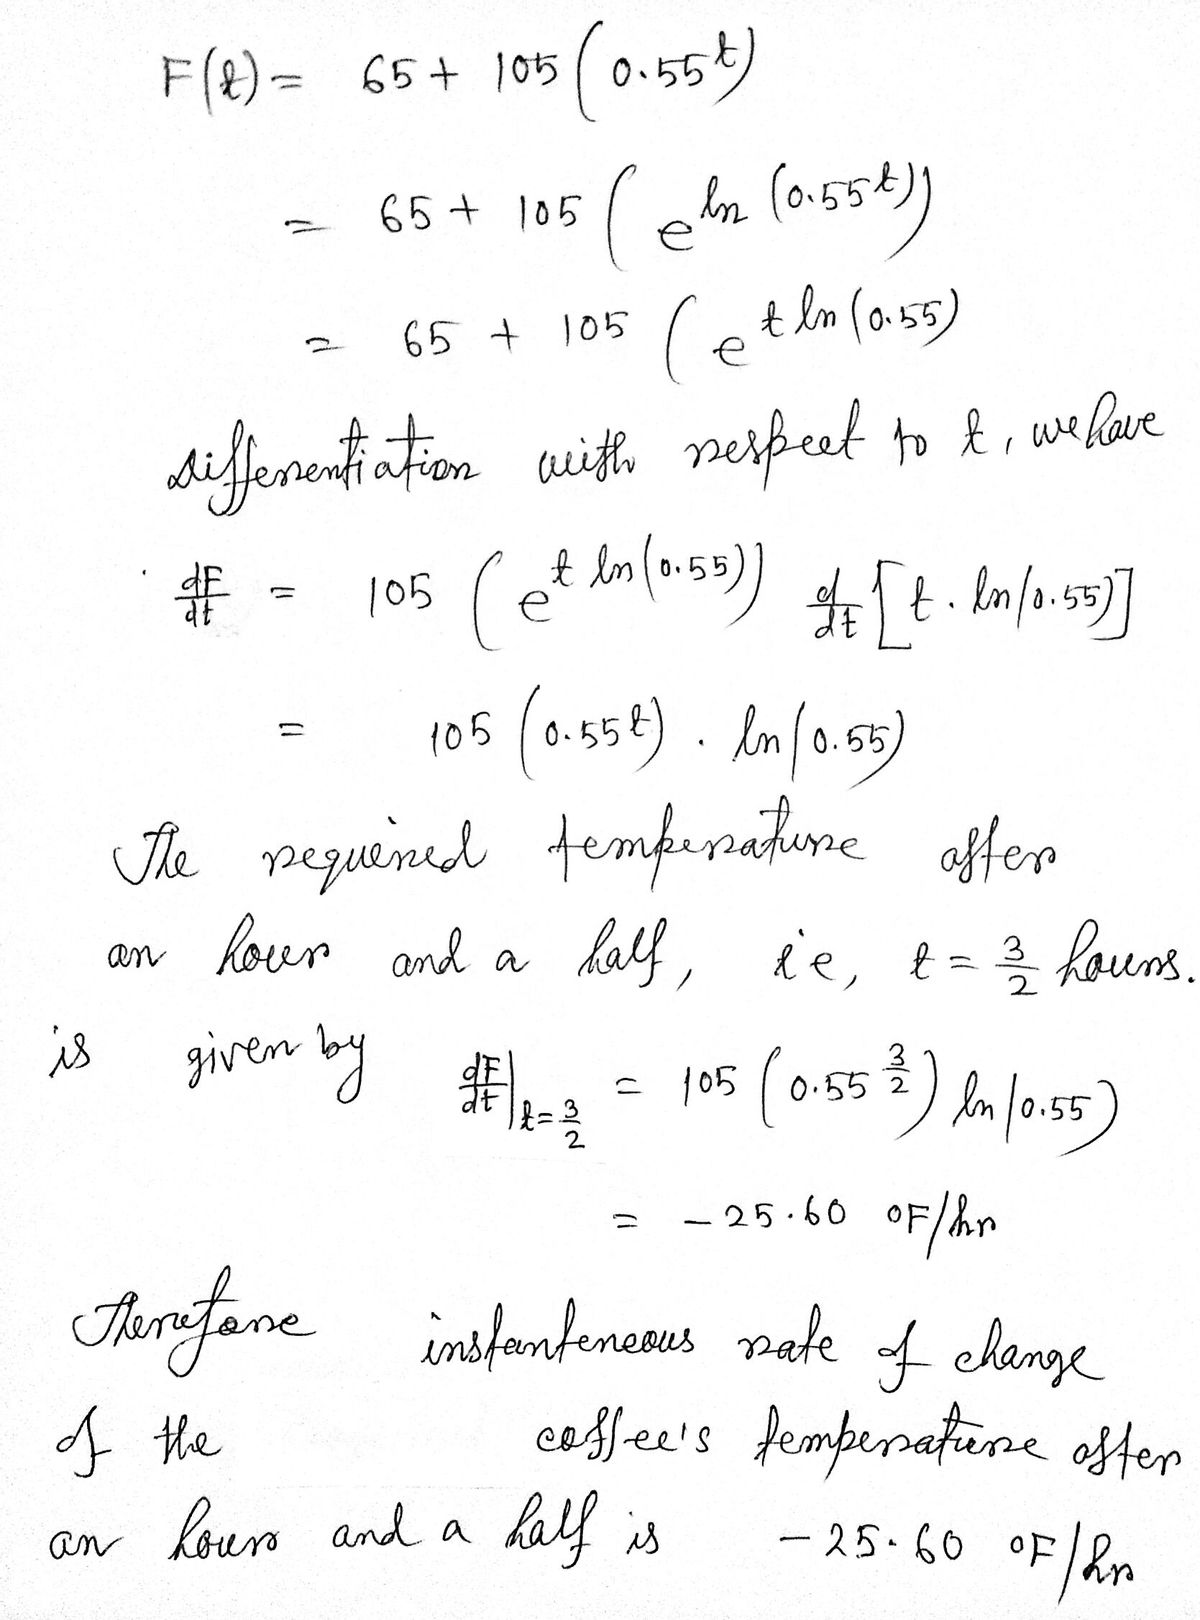 F(t) = 65 + 105 (0.55^t)
= 65 + 105 (e^ln (0.55^t))
= 65 + 105 (e^t ln (0.55)
Differentiation with respect to t, we have
dF/dt = 105 (e^t ln (0.55)) d/dt [t . ln (0.55)]
= 105 (0.55^t) . ln (0.55)
The required temperature after
an hour and a half, ie, t = 3/2 hours.
is given by dF/dt|t=3/2 = 105 (0.55^3/2) ln (0.55)
= -25.60 °F/hr
Therefore instanteneous rate of change
of the coffee's temperature after
an hour and a half is -25.60 °F/hr